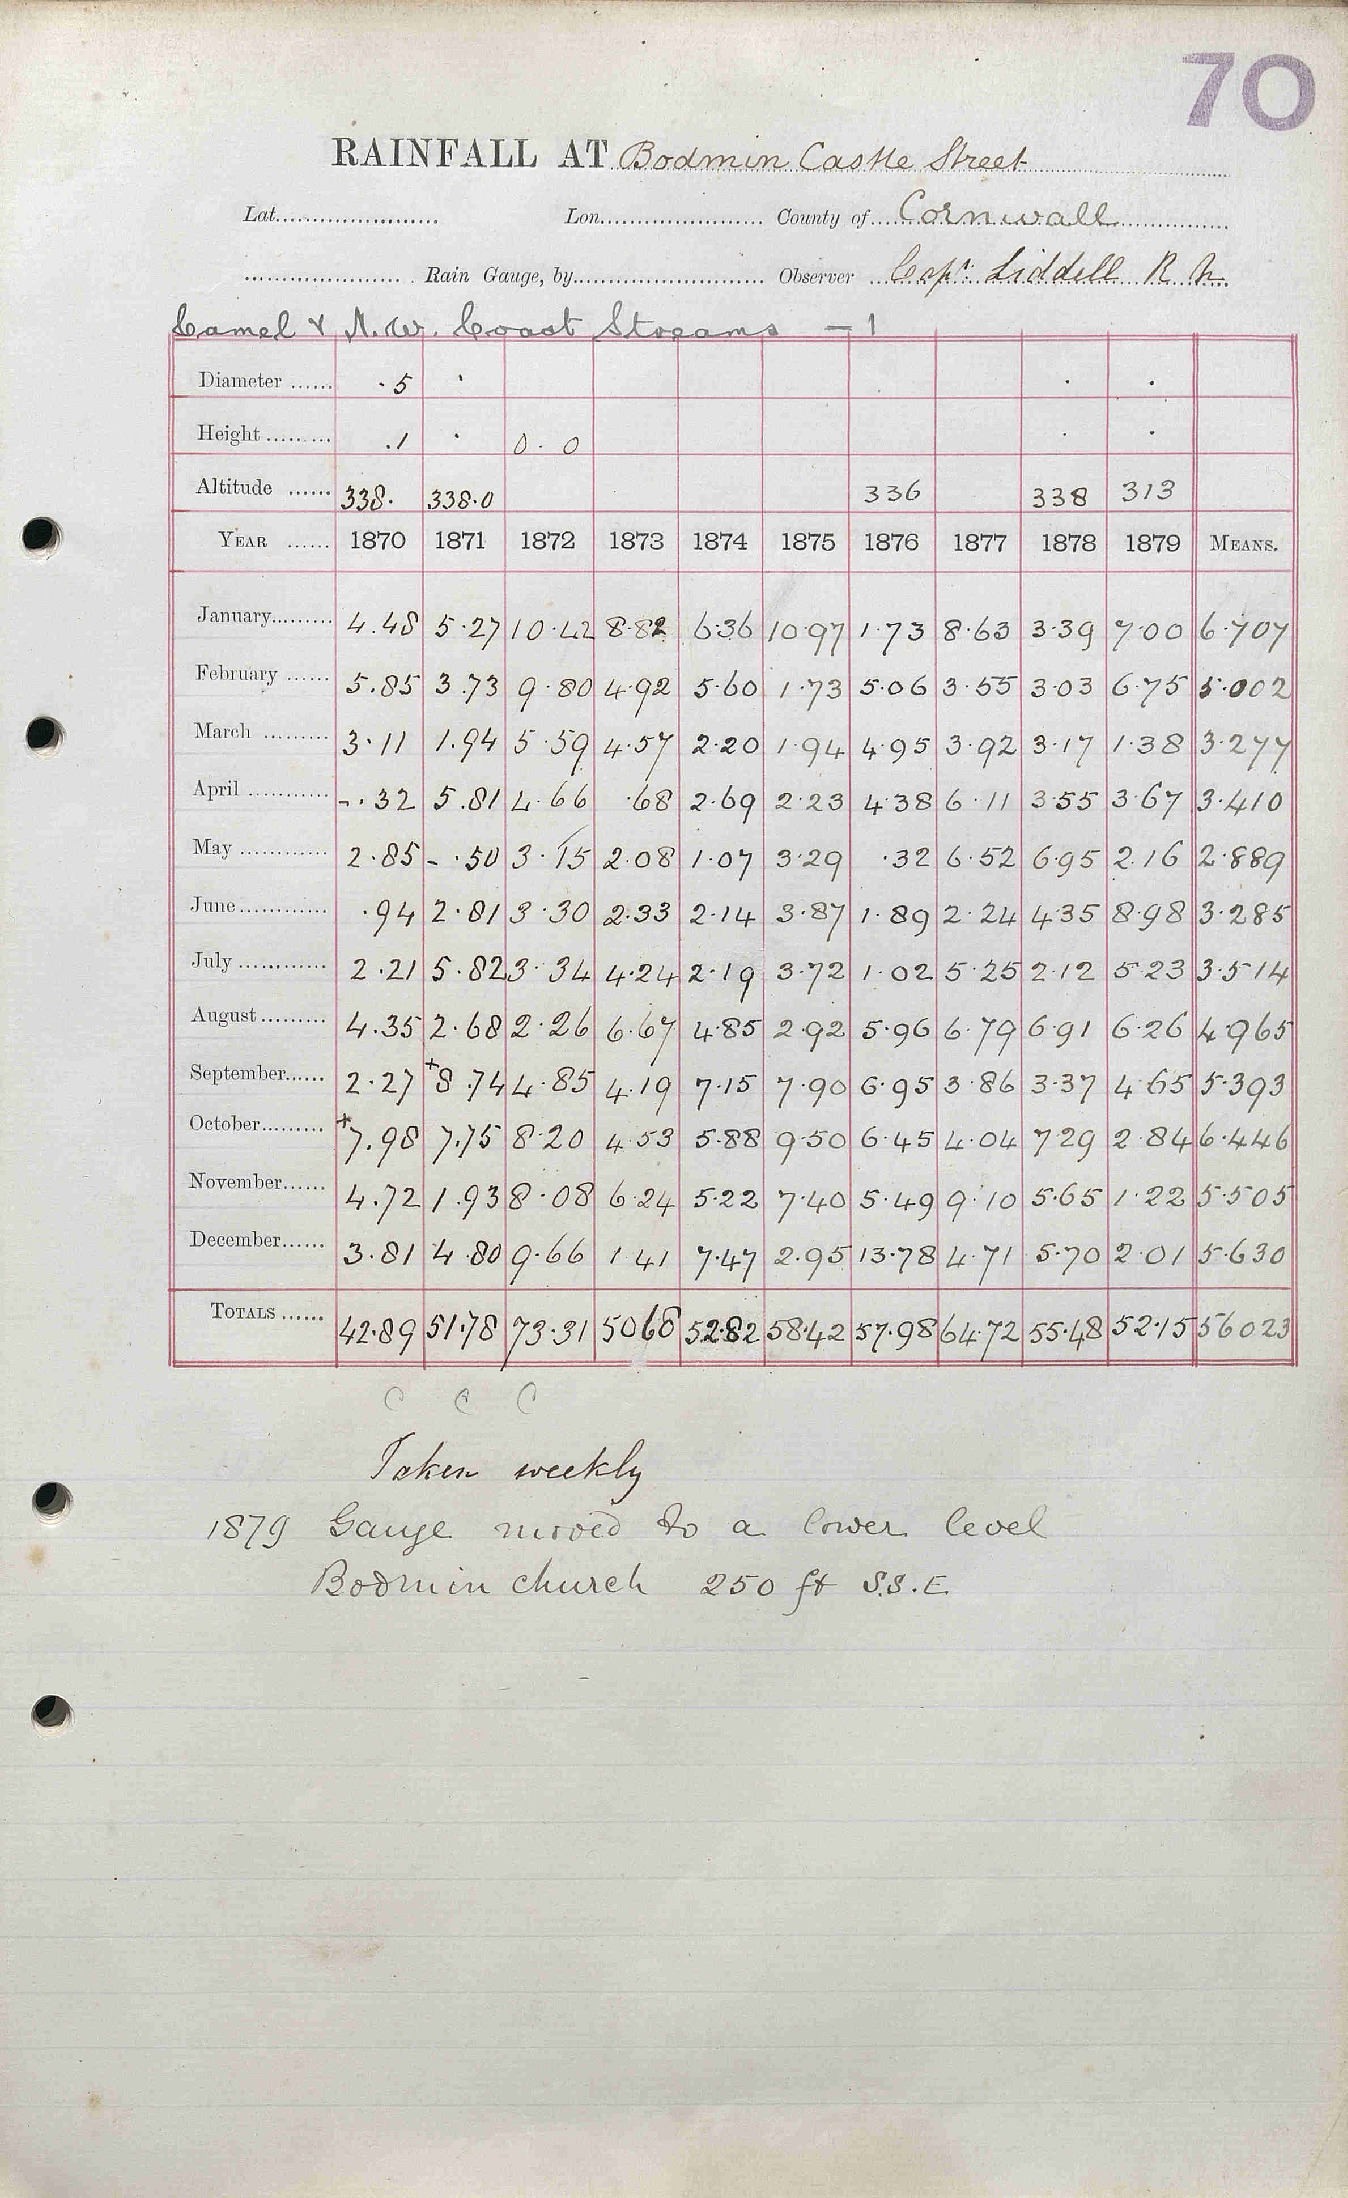 70
RAINFALL AT Bodmin Castle Street
Lat. Lon. County of Cornwall
Rain Gauge, by Observer Capt. Liddell R N.
Camel & N.W. Coast Streams — 1
Diameter ...... .5
Height ......... .1 0.0
Altitude ...... 338. 338.0 336 338 313
YEAR ...... 1870 1871 1872 1873 1874 1875 1876 1877 1878 1879 MEANS.
January......... 4.48 5.27 10.42 8.82 6.36 10.97 1.73 8.63 3.39 7.00 6.707
February ...... 5.85 3.73 9.80 4.92 5.60 1.73 5.06 3.55 3.03 6.75 5.002
March ......... 3.11 1.94 5.59 4.57 2.20 1.94 4.95 3.92 3.17 1.38 3.277
April ........... -.32 5.81 4.66 .68 2.69 2.23 4.38 6.11 3.55 3.67 3.410
May ............. 2.85 -.50 3.15 2.08 1.07 3.29 .32 6.52 6.95 2.16 2.889
June............. .94 2.81 3.30 2.33 2.14 3.87 1.89 2.24 4.35 8.98 3.285
July ............. 2.21 5.82 3.34 4.24 2.19 3.72 1.02 5.25 2.12 5.23 3.514
August......... 4.35 2.68 2.26 6.67 4.85 2.92 5.96 6.79 6.91 6.26 4.965
September...... 2.27 +8.74 4.85 4.19 7.15 7.90 6.95 3.86 3.37 4.65 5.393
October......... +7.98 7.75 8.20 4.53 5.88 9.50 6.45 4.04 7.29 2.84 6.446
November...... 4.72 1.93 8.08 6.24 5.22 7.40 5.49 9.10 5.65 1.22 5.505
December...... 3.81 4.80 9.66 1.41 7.47 2.95 13.78 4.71 5.70 2.01 5.630
TOTALS ...... 42.89 51.78 73.31 50.68 52.82 58.42 57.98 64.72 55.48 52.15 56.023
C C C
Taken weekly
1879 Gauge moved to a lower level
Bodmin church 250 ft S.S.E.